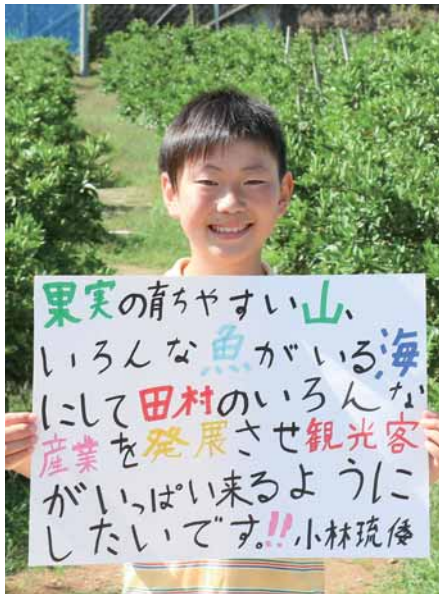 果実の育ちやすい山、
いろんな魚がいる海
にして田村のいろんな
産業を発展させ観光客
がいっぱい来るように
したいです。!! 小林琉